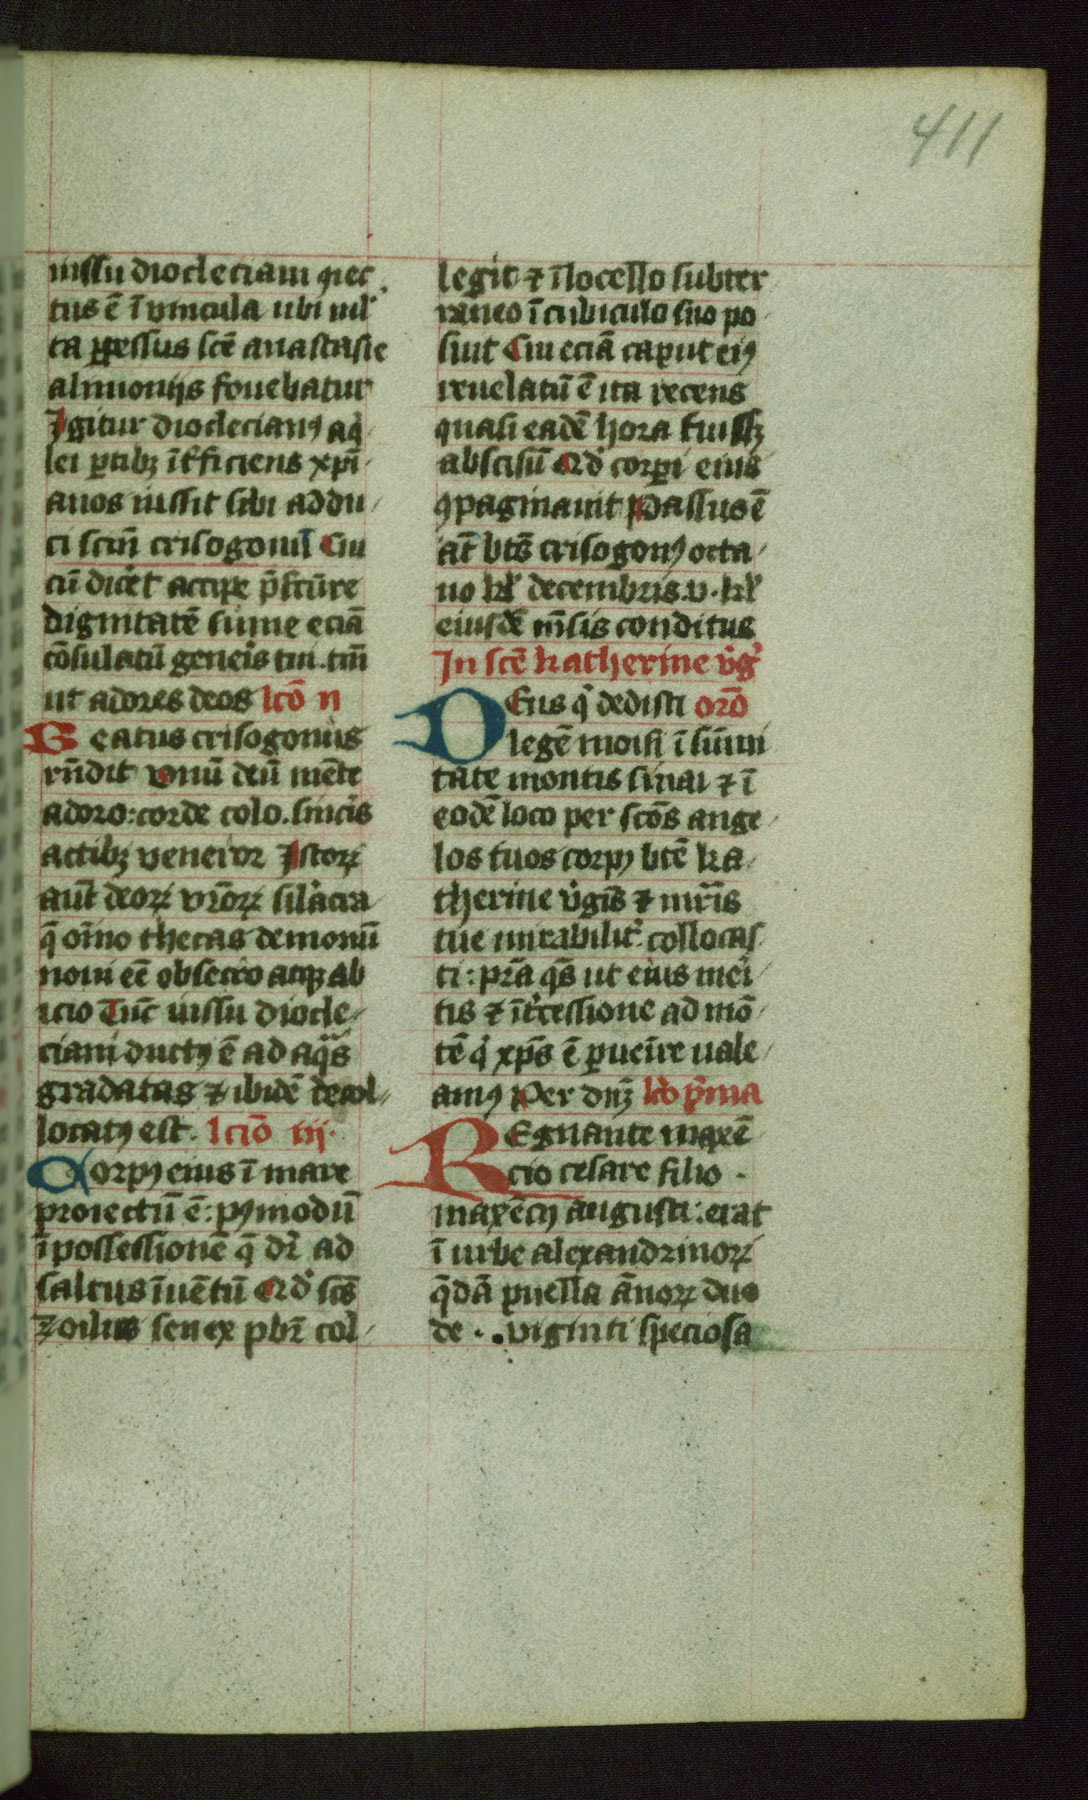 411
iussu diocleciani qiec
tus ē ī vincula ubi mł
ta ꝑpessus scē anastasie
almonijs fouebatur
Igitur dioclecianꝰ aq̇
lei ꝑtibꝫ īt̄ficiens xp̄i
anos iussit sibi addu
ci scm̄ crisogonū Cui
cū dicēt accipe p̄fcūre
dignitatē sume eciā
cōsulatū geneīs tui. tm̄
ut adores deos lcō ii
Beatus crisogonus
rn̄dit vnū deū mēte
adoro: corde colo. sincīs
actibꝫ veneror Istoꝝ
aut̄ deoꝝ vr̄oꝝ silacra
q̄ oīno thecas demonū
noui eē obsecro atqꝫ ab
icio Tūc iussu diocle
ciani ductꝰ ē ad aquas
gradatas ⁊ ibidē decol
locatꝰ est. lcio iij.
Corpꝰ eius ī mare
proiectū ē: pꝰmodū
ī possessionē q̄ dr̄ ad
saltus īuētū Qd̓ scs̄
zoilus senex pb̄r col
legit ⁊ ī locello subter
raneo ī cubiculo suo po
suit Cui eciā caput eiꝰ
reuelatū ē ita recens
quasi eadē hora fuissꝫ
abscisū Qd̓ corpi eius
ꝯpaginauit Passus ē
at̄ bt̄s crisogonꝰ octa
uo kł decembris. v. kł
eiusdē mēsis conditus
In scē katherine v̓g̓
Deus q̓ dedisti orō
legē moisi ī sūmi
tate montis sinai ⁊ ī
eodē loco per scōs ange
los tuos corpꝰ btē ka
therine v̓gis ⁊ mr̄is
tue mirabilit̓ collocas
ti: pr̄a qs̄ ut eius meī
tis ⁊ īt̓cessione ad mō
tē q̓ xp̄s ē ꝑuenīre uale
amꝰ Per dnꝫ lcō p̄ma
Regnante maxē
cio cesare filio
maxēcij augusti: erat
ī urbe alexandrinoꝝ
q̄dā puella ānoꝝ duo
de . . viginti speciosa